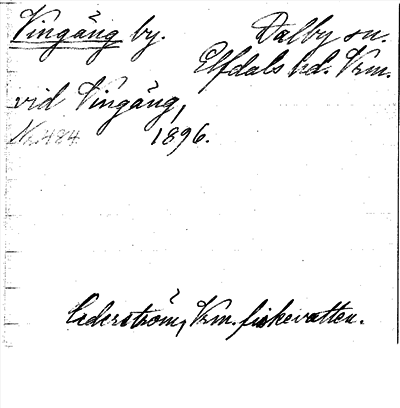 Vingäng by. Dalby sn.
Elfdals hd. Vrm.
vid Vingäng,
Nr. 484 1896.
Cederström, Vrm. fiskevatten.